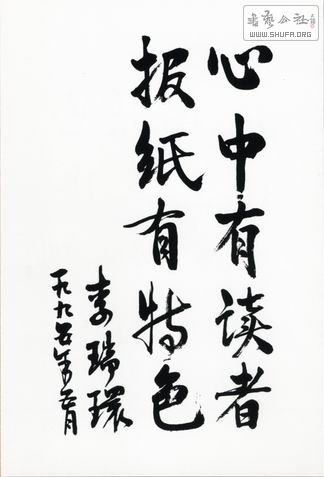 心中有读者
报纸有特色
李瑞环
一九九五年五月
书艺公社
WWW.SHUFA.ORG